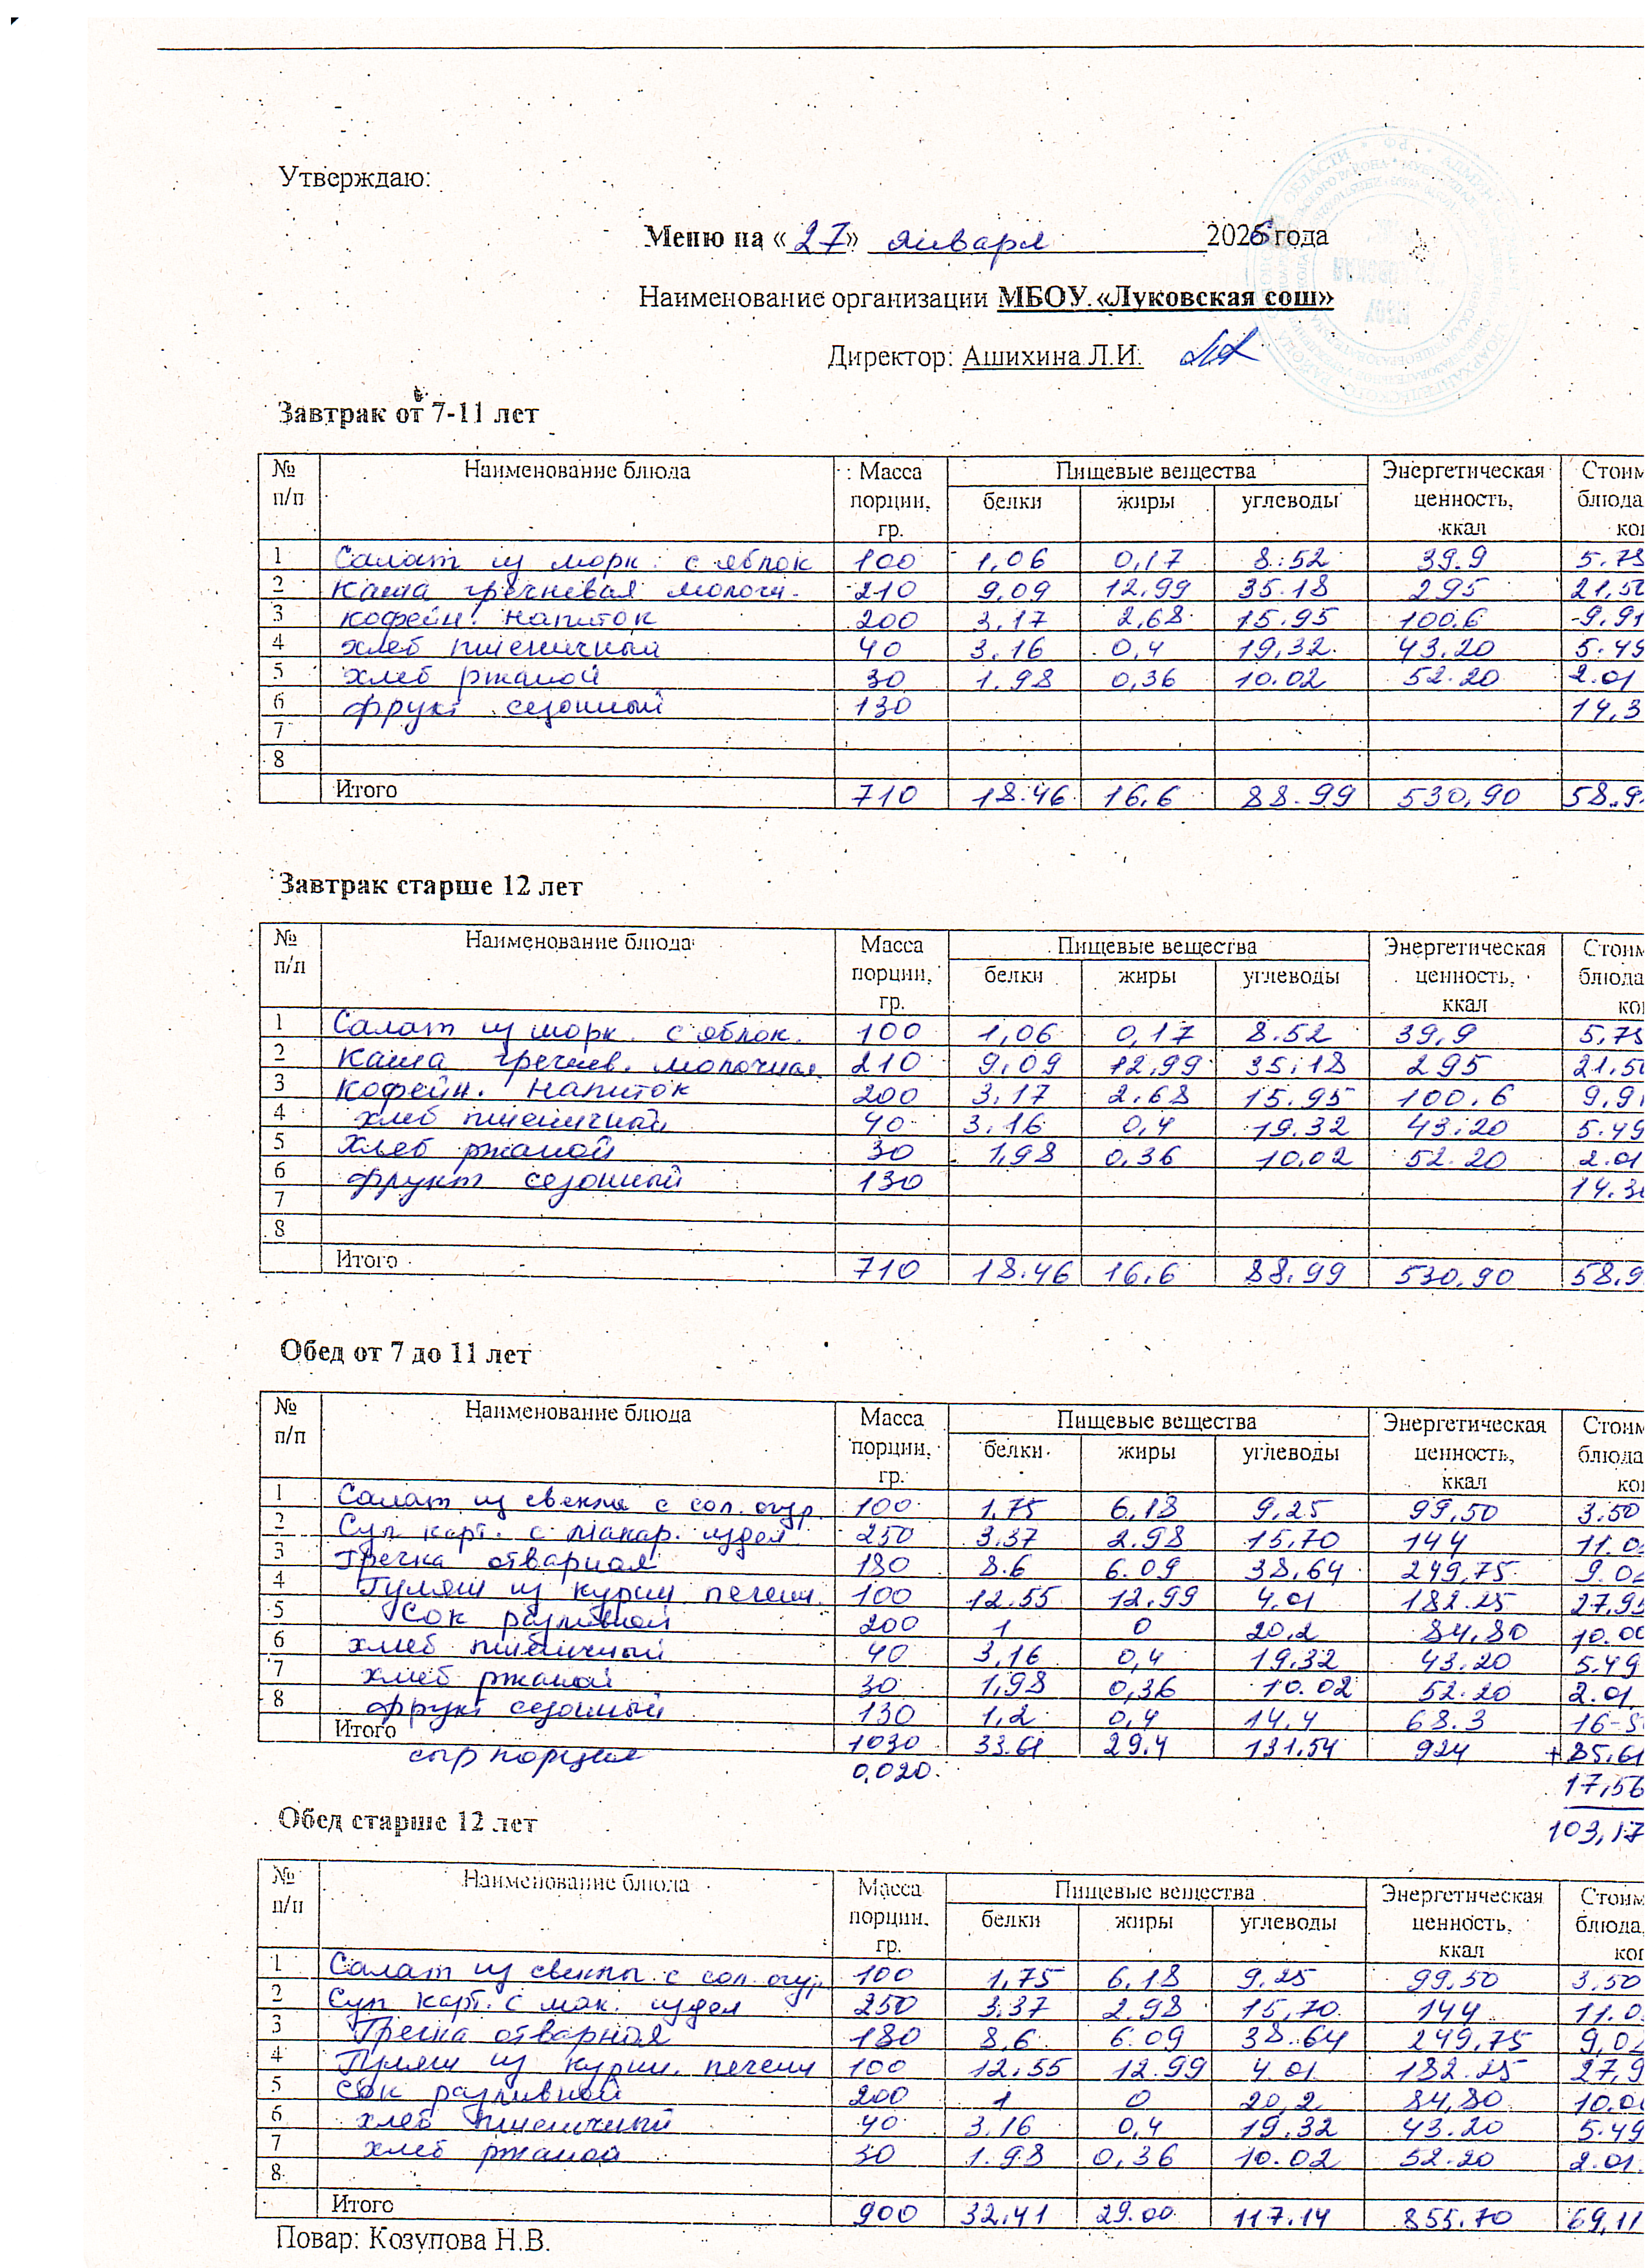 Утверждаю:
Меню на «27» января 2026 года
Наименование организации МБОУ «Луковская сош»
Директор: Ашихина Л.И.
Завтрак от 7-11 лет
№ п/п Наименование блюда Масса порции, гр. Пищевые вещества Энергетическая ценность, ккал Стоим блюда ко
белки жиры углеводы
1 Салат из морк. с яблок 100 1,06 0,17 8.52 39.9 5.75
2 Каша гречневая молочн. 210 9,09 12,99 35.18 295 21,50
3 кофейн. напиток 200 3,17 2,68 15.95 100.6 9,91
4 хлеб пшеничный 40 3.16 0,4 19,32 43.20 5.49
5 хлеб ржаной 30 1.98 0,36 10.02 52.20 2.01
6 фрукт сезонный 130 14,3
7
8
Итого 710 18.46 16,6 88.99 530,90 58.9
Завтрак старше 12 лет
№ п/п Наименование блюда Масса порции, гр. Пищевые вещества Энергетическая ценность, ккал Стоим блюда ко
белки жиры углеводы
1 Салат из морк. с яблок. 100 1,06 0,17 8.52 39,9 5,75
2 Каша гречнев. молочная 210 9,09 12,99 35,18 295 21,50
3 Кофейн. напиток 200 3,17 2.68 15.95 100.6 9,91
4 хлеб пшеничный 40 3.16 0,4 19.32 43.20 5.49
5 Хлеб ржаной 30 1,98 0,36 10,02 52.20 2.01
6 фрукт сезонный 130 14.30
7
8
Итого 710 18.46 16,6 88,99 530,90 58,9
Обед от 7 до 11 лет
№ п/п Наименование блюда Масса порции, гр. Пищевые вещества Энергетическая ценность, ккал Стоим блюда ко
белки жиры углеводы
1 Салат из свеклы с сол. огур. 100 1,75 6,18 9,25 99,50 3.50
2 Суп карт. с макар. издел. 250 3.37 2.98 15,70 144 11.0
3 Гречка отварная 180 8.6 6.09 38,64 249,75 9.02
4 Гуляш из курин. печени. 100 12.55 12.99 4.01 182.25 27,95
5 Сок разливной 200 1 0 20,2 84,80 10.00
6 хлеб пшеничный 40 3,16 0,4 19,32 43.20 5.49
7 хлеб ржаной 30 1,98 0,36 10.02 52.20 2.01
8 фрукт сезонный 130 1,2 0,4 14,4 68.3 16-5
Итого 1030 33.61 29,4 131,54 924 +85,61
сыр порция 0,020. 17,56
103,17
Обед старше 12 лет
№ п/п Наименование блюда Масса порции, гр. Пищевые вещества Энергетическая ценность, ккал Стоим блюда ко
белки жиры углеводы
1 Салат из свеклы с сол. огур 100 1,75 6,18 9.25 99,50 3,50
2 Суп карт. с мак. издел 250 3,37 2.98 15,70 144 11.0
3 Гречка отварная 180 8,6 6.09 38.64 249,75 9,02
4 Гуляш из курин. печени 100 12,55 12.99 4.01 182.25 27,9
5 Сок разливной 200 1 0 20,2 84,80 10.00
6 хлеб пшеничный 40 3.16 0,4 19.32 43.20 5.49
7 хлеб ржаной 30 1.98 0,36 10.02 52.20 2.01
8
Итого 900 32.41 29.00 117.14 855.70 69,11
Повар: Козупова Н.В.